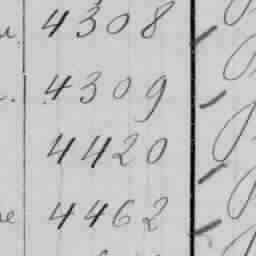 4308
4309
4420
4462